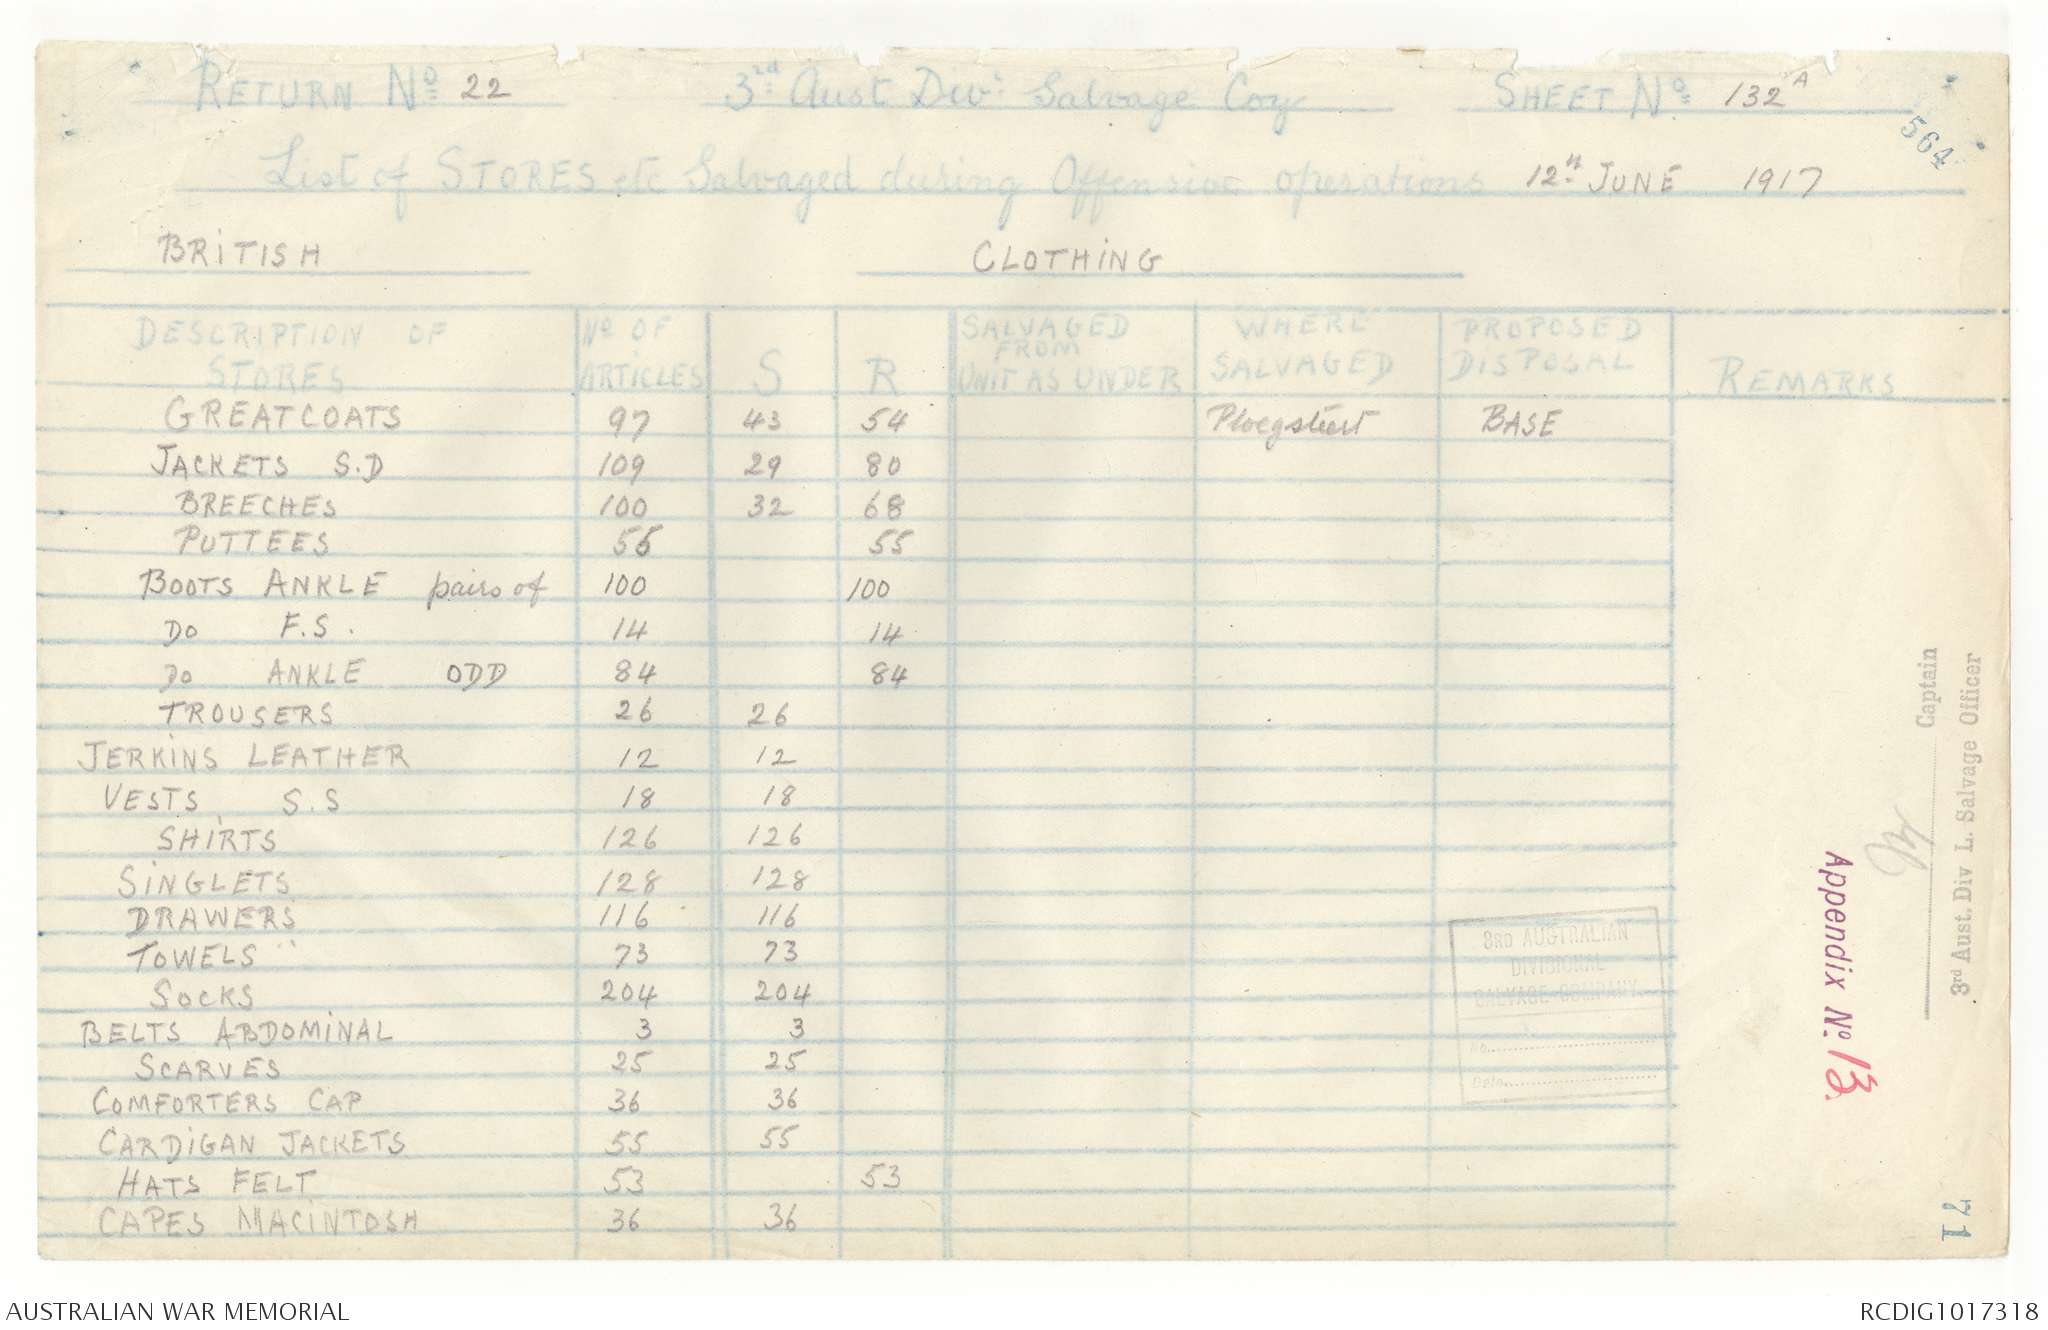 RETURN No 22 3rd Aust Divl Salvage Coy SHEET No 132A
564
List of STORES etc Salvaged during Offensive operations 12th JUNE 1917
BRITISH CLOTHING
DESCRIPTION OF STORES No OF ARTICLES S R SALVAGED FROM UNIT AS UNDER WHERE SALVAGED PROPOSED DISPOSAL REMARKS
GREATCOATS 97 43 54 Ploegsteert BASE
JACKETS S.D 109 29 80
BREECHES 100 32 68
PUTTEES 55 55
BOOTS ANKLE pairs of 100 100
DO F.S. 14 14
DO ANKLE ODD 84 84
TROUSERS 26 26
JERKINS LEATHER 12 12
VESTS S.S 18 18
SHIRTS 126 126
SINGLETS 128 128
DRAWERS 116 116
TOWELS 73 73
SOCKS 204 204
BELTS ABDOMINAL 3 3
SCARVES 25 25
COMFORTERS CAP 36 36
CARDIGAN JACKETS 55 55
HATS FELT 53 53
CAPES MACINTOSH 36 36
3RD AUSTRALIAN
DIVISIONAL
SALVAGE COMPANY.
No.
Date
Appendix No. 13.
Captain
3rd Aust. Div L. Salvage Officer
71
AUSTRALIAN WAR MEMORIAL RCDIG1017318